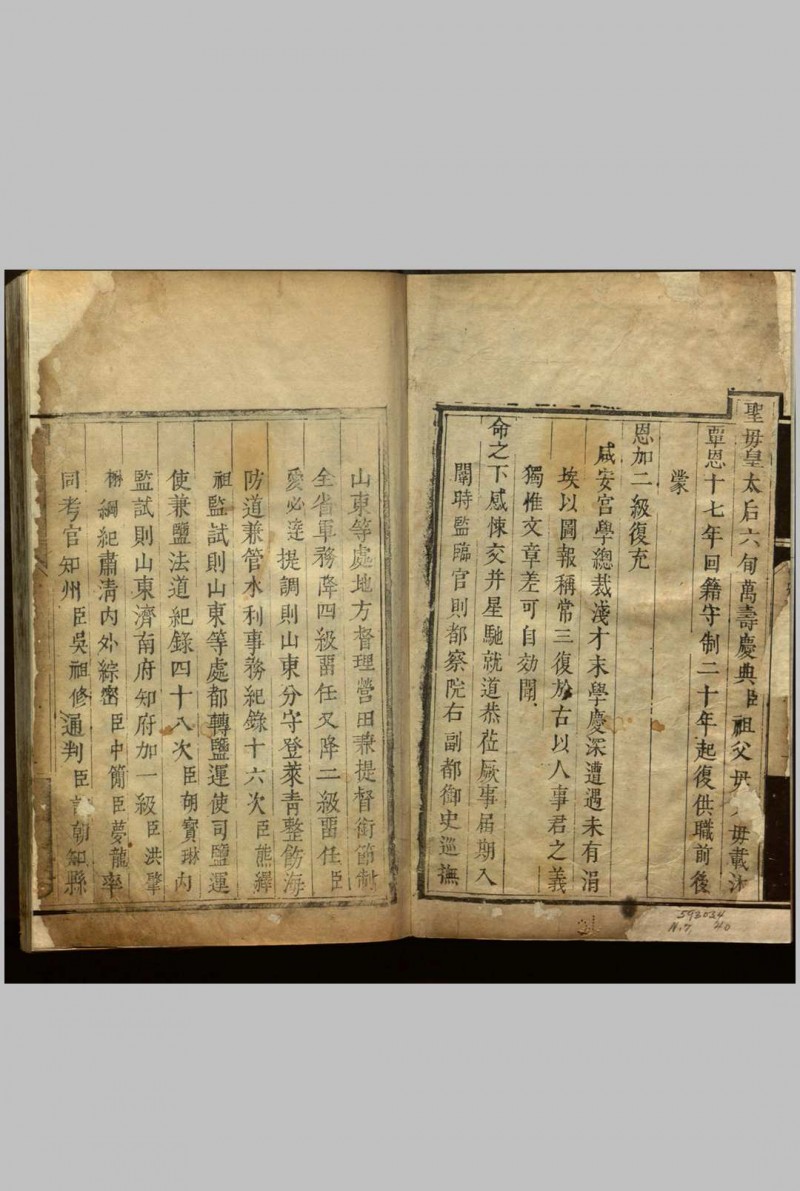 聖母皇太后六旬萬壽慶典臣祖父母 母載沐
覃恩十七年回籍守制二十年起復供職前後
蒙
恩加二級復充
咸安宮學總裁淺才末學慶深遭遇未有涓
埃以圖報稱常三復於古以人事君之義
獨惟文章差可自効聞
命之下感悚交并星馳就道恭莅厥事届期入
闈時監臨官則都察院右副都御史巡撫
山東等處地方督理營田兼提督銜節制
全省軍務降四級畱任又降二級畱任臣
愛必達提調則山東分守登萊青整飭海
防道兼管水利事務紀錄十六次臣熊繹
祖監試則山東等處都轉鹽運使司鹽運
使兼鹽法道紀錄四十八次臣胡寶琳內
監試則山東濟南府知府加一級臣洪肇
楙綱紀肅清內外綜密臣中簡臣夢龍率
同考官知州臣吳祖修通判臣 朝知縣
593024
N.7 40